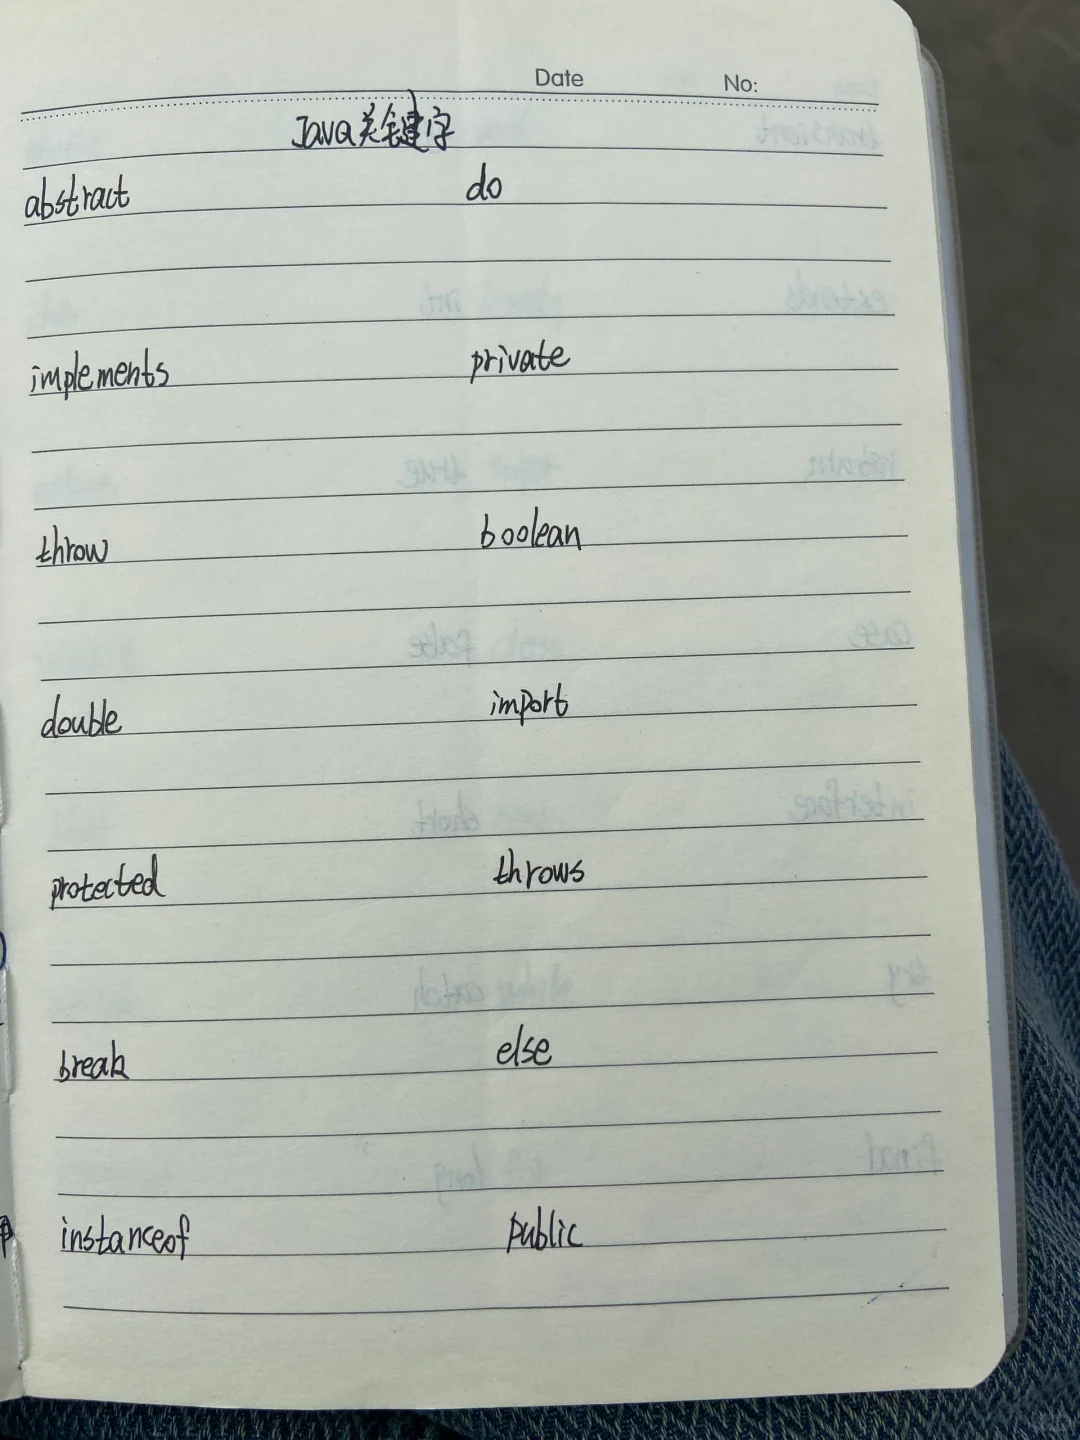 Date No:
Java关键字
abstract do
implements private
throw boolean
double import
protected throws
break else
instanceof public